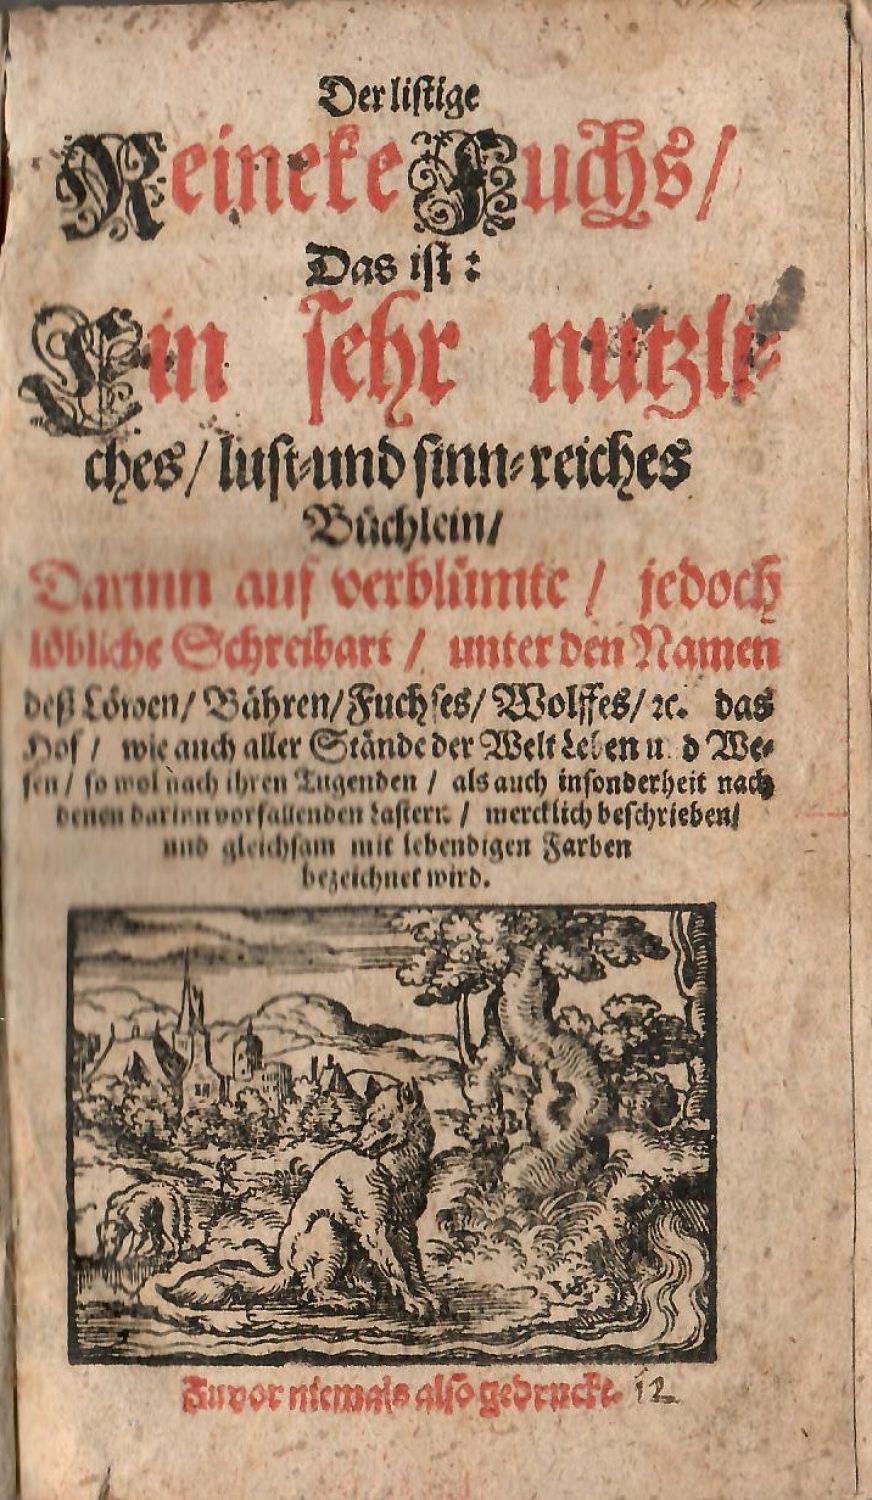 Der listige
Reineke Fuchs/
Das ist:
Ein sehr nutzli-
ches/ lust-und sinn-reiches
Büchlein/
Darinn auf verblümte / jedoch
löbliche Schreibart / unter den Namen
deß Löwen/ Bähren/ Fuchses/ Wolffes/ ꝛc. das
Hof / wie auch aller Stände der Welt Leben und We-
sen / so wol nach ihren Tugenden / als auch insonderheit nach
denen darinn vorfallenden Lastern / mercklich beschrieben/
und gleichsam mit lebendigen Farben
bezeichnet wird.
Zuvor niemals also gedruckt. 12